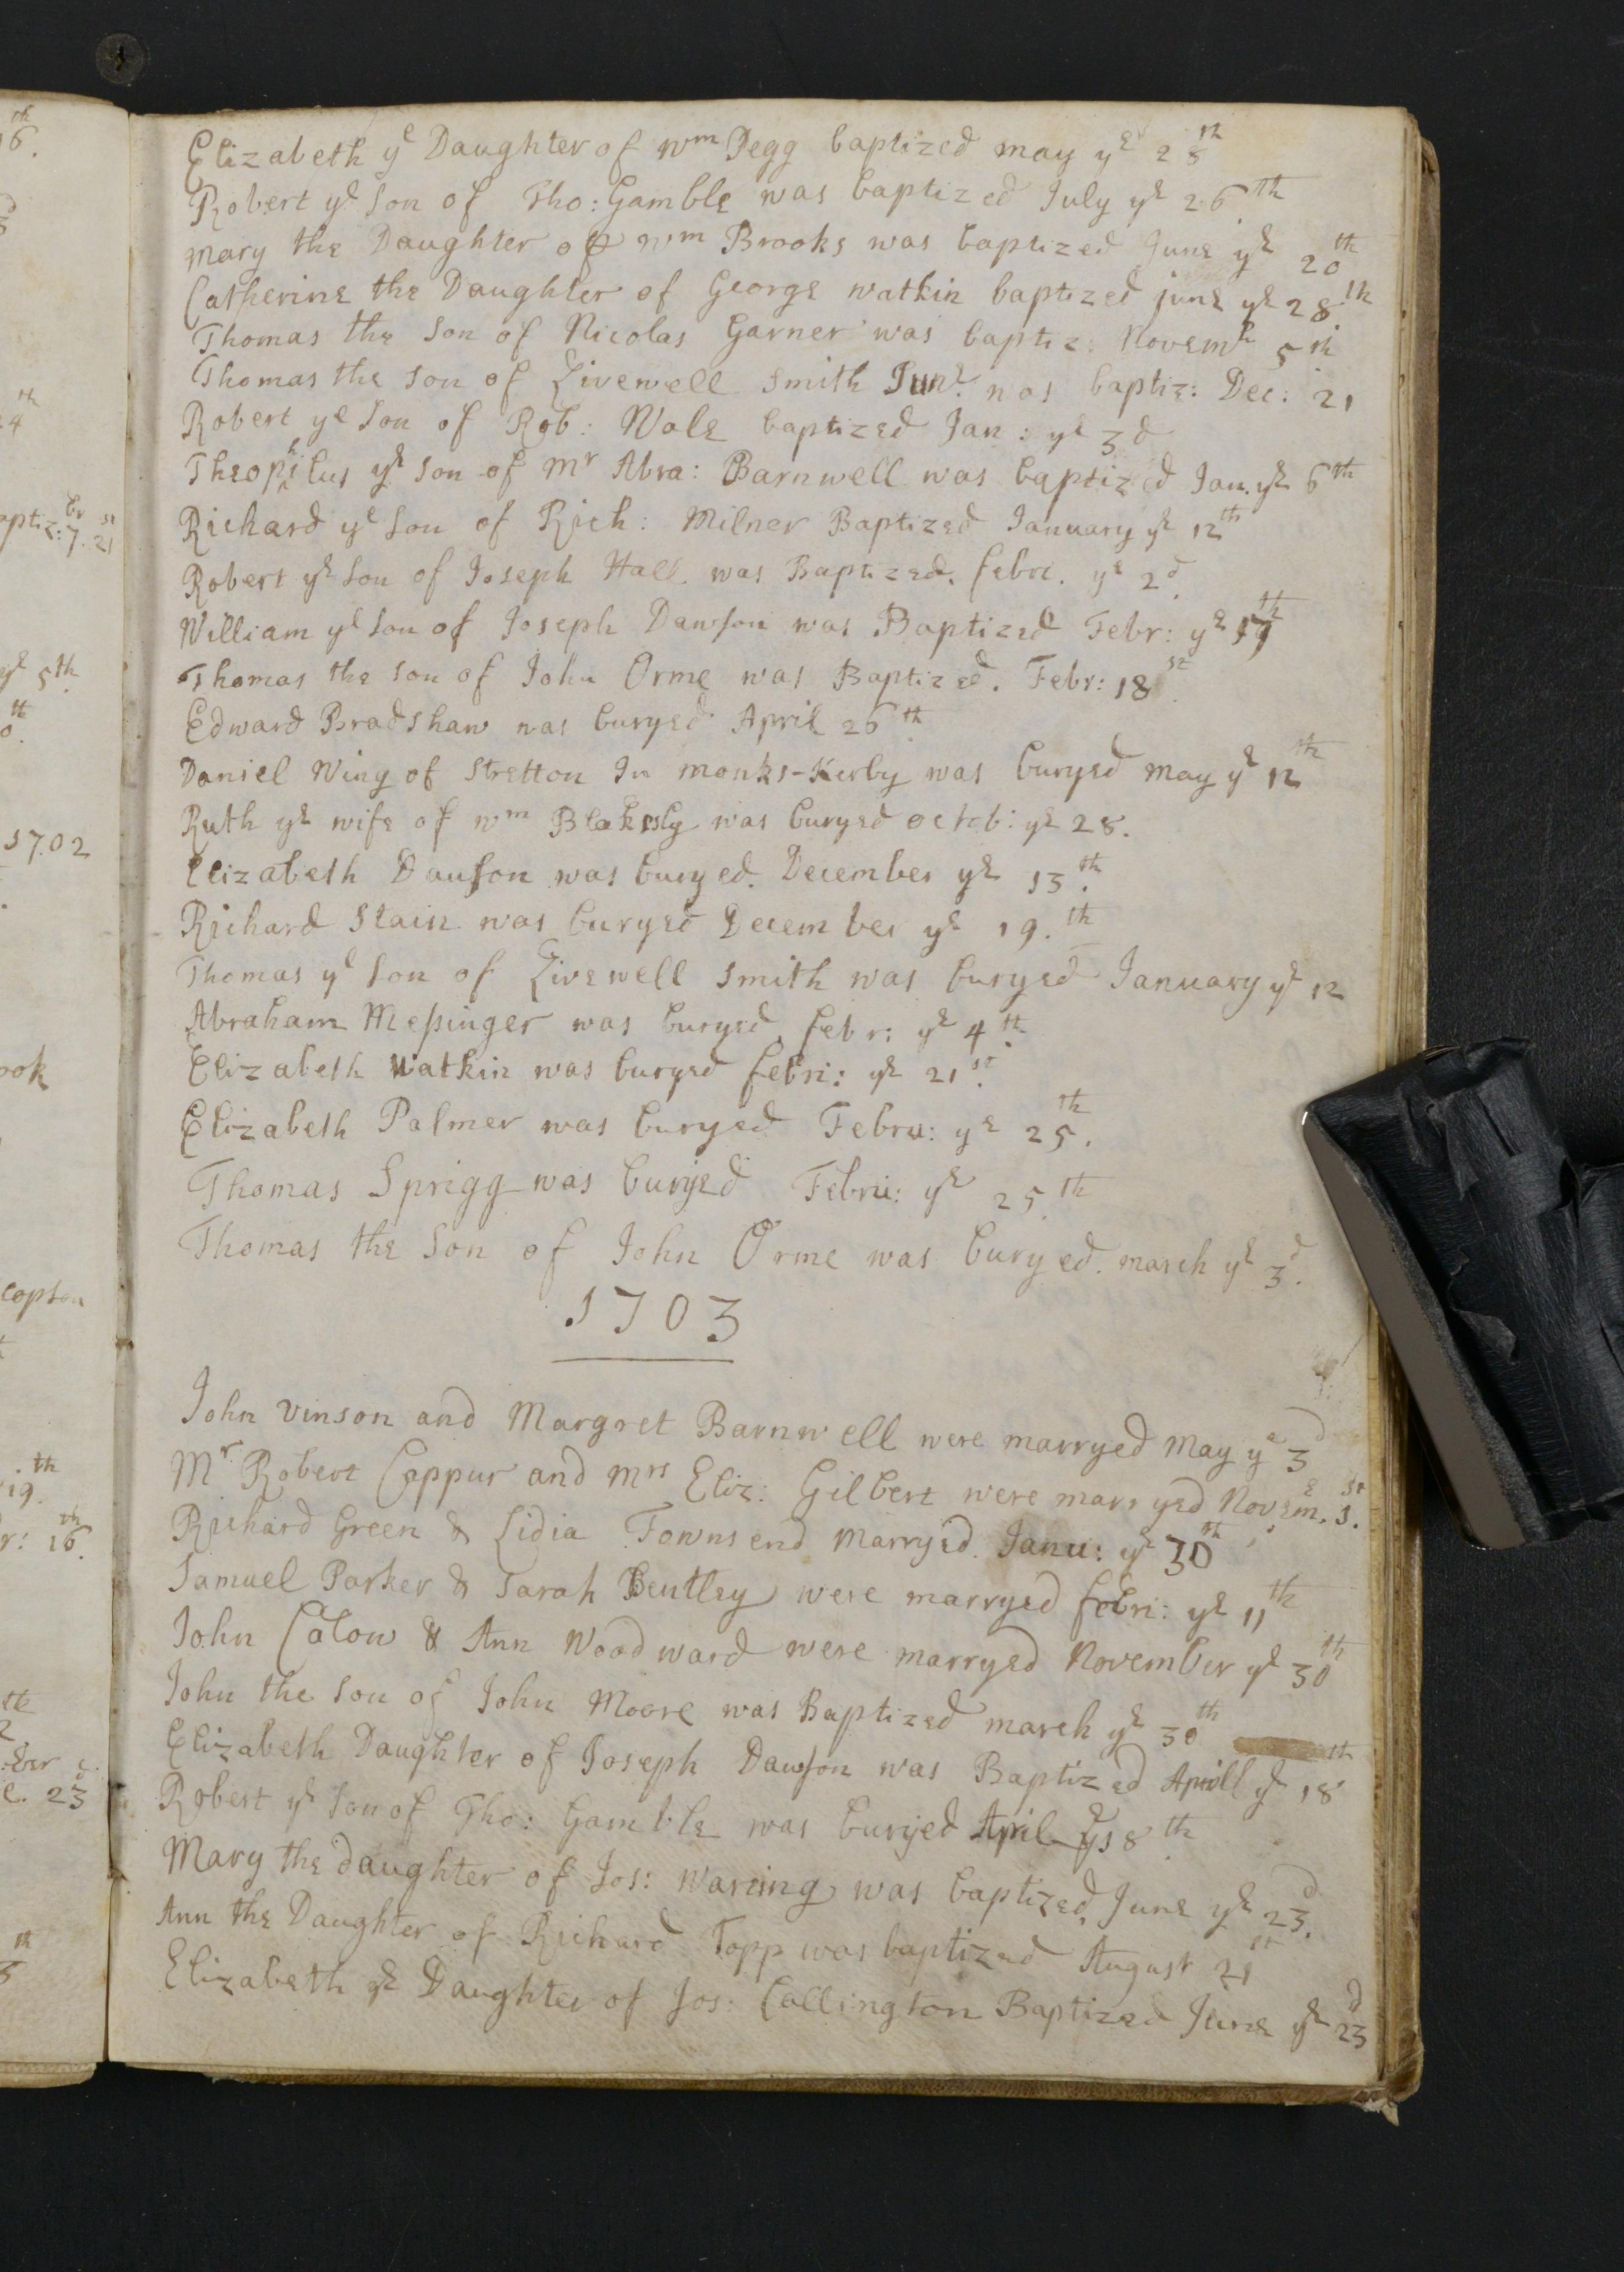 Elizabeth ye Daughter of Wm Pegg baptized may ye 28th
Robert ye Son of Tho: Gamble was baptized July ye 26th
Mary the Daughter of Wm Brooks was baptized June ye 20th
Catherine the Daughter of George watkin baptized june ye 28th
Thomas the Son of Nicolas Garner was baptiz: Novemb 5th
Thomas the Son of Livewell Smith Junr. was baptiz: Dec: 21
Robert ye Son of Rob: Wale baptized Jan: ye 3d
Theophilus ye Son of Mr Abra: Barnwell was baptized Jan. ye 6th
Richard ye Son of Rich: Milner Baptized January ye 12th
Robert ye Son of Joseph Hall was Baptized. febri. ye 2d
William ye Son of Joseph Dawson was Baptized Febr: ye 17th
Thomas the Son of John Orme was Baptized. Febr: 18st
Edward Bradshaw was buryed April 26th
Daniel Wing of Stretton In monks-Kerby was buryed may ye 12th
Ruth ye wife of wm Blakesly was buryed octob: ye 28.
Elizabeth Dauson was buryed. December ye 13th.
Richard Stain was buryed December ye 19.th
Thomas ye Son of Livewell Smith was buryed January ye 12
Abraham Messinger was buryed febr: ye 4th.
Elizabeth Watkin was buryed febri: ye 21st.
Elizabeth Palmer was buryed Febru: ye 25th.
Thomas Sprigg was buryed Febru: ye 25th
Thomas the Son of John Orme was buryed. march ye 3d.
1703
John Vinson and Margret Barnwell were marryed May ye 3d
Mr Robert Cappur and Mrs Eliz: Gilbert were marryed Novem. ye 1st.
Richard Green & Lidia Townsend Marryed. Janu: ye 30th
Samuel Parker & Sarah Bentley were marryed febri: ye 11th
John Calow & Ann Woodward were marryed November ye 30th
John the Son of John Moore was Baptized march ye 30th
Elizabeth Daughter of Joseph Dawson was Baptized Aprill ye 18th
Robert ye Son of Tho: Gamble was buryed April ye 18th.
Mary the daughter of Jos: Wareing was baptized. June ye 23d.
Ann the Daughter of Richard Topp was baptized August 21st
Elizabeth ye Daughter of Jos: Callington Baptized June ye 23d